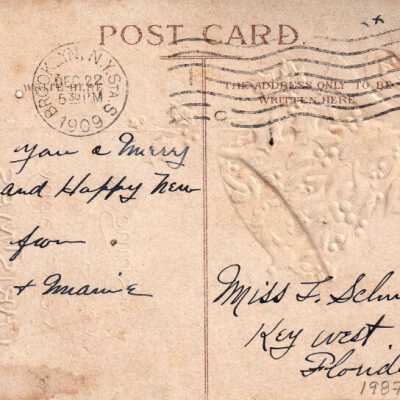 POST CARD
BROOKLYN, N.Y. STA. S.
DEC 22
5 30 PM
1909
THE ADDRESS ONLY TO BE
WRITTEN HERE
you a Merry
and Happy New
from
+ Mamie
Miss F. Schu
Key West
Florid
1987